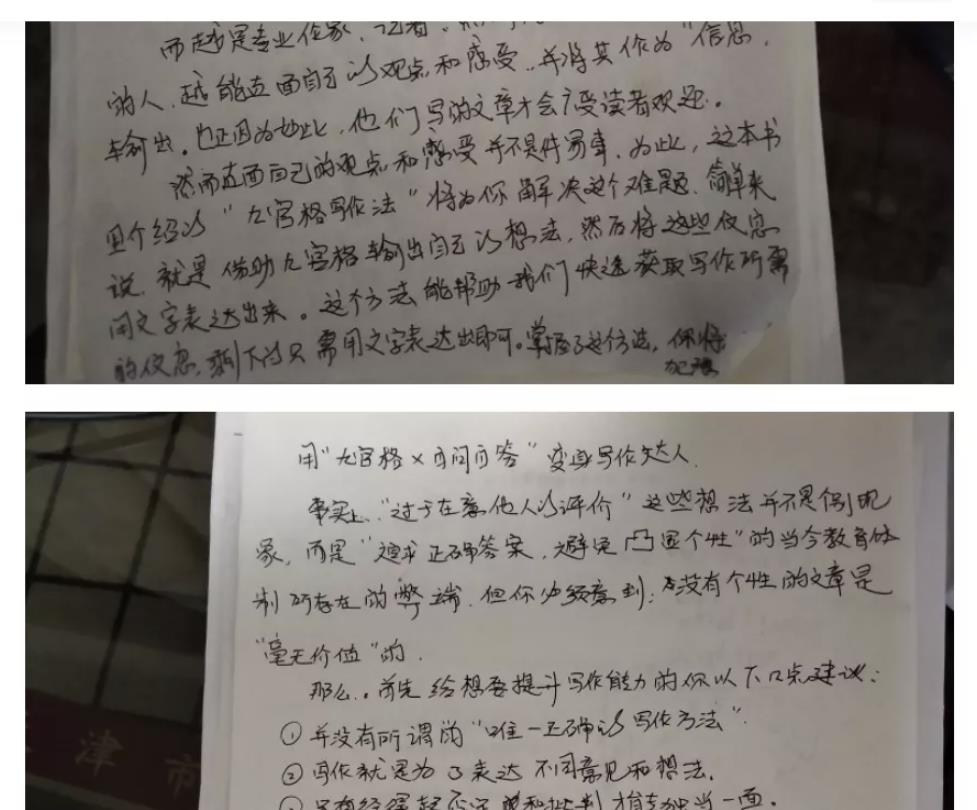 而越是专业作家、记者、
的人，越能直面自己的观点和感受，并将其作为“信息，
输出。也正因为如此，他们写的文章才会广受读者欢迎。
然而直面自己的观点和感受并不是件易事，为此，这本书
里介绍的“九宫格写作法”将为你解决这个难题，简单来
说，就是借助九宫格输出自己的想法，然后将这些信息
用文字表达出来。这个方法能帮助我们快速获取写作所需
的信息，剩下的只需用文字表达出即可。掌握了这个方法，你将
用“九宫格×自问自答”变身写作达人。
事实上，“过于在意他人的评价”这些想法并不是个别现
象，而是“追求正确答案，避免凸显个性”的当今教育体
制所存在的弊端，但你必须意到：没有个性的文章是
“毫无价值”的。
那么，首先给想要提升写作能力的你以下口点建议：
①并没有所谓的“唯一正确的写作方法”
②写作就是为了表达不同意见和想法。
只有经得起否定和批判才能独当一面。
津市